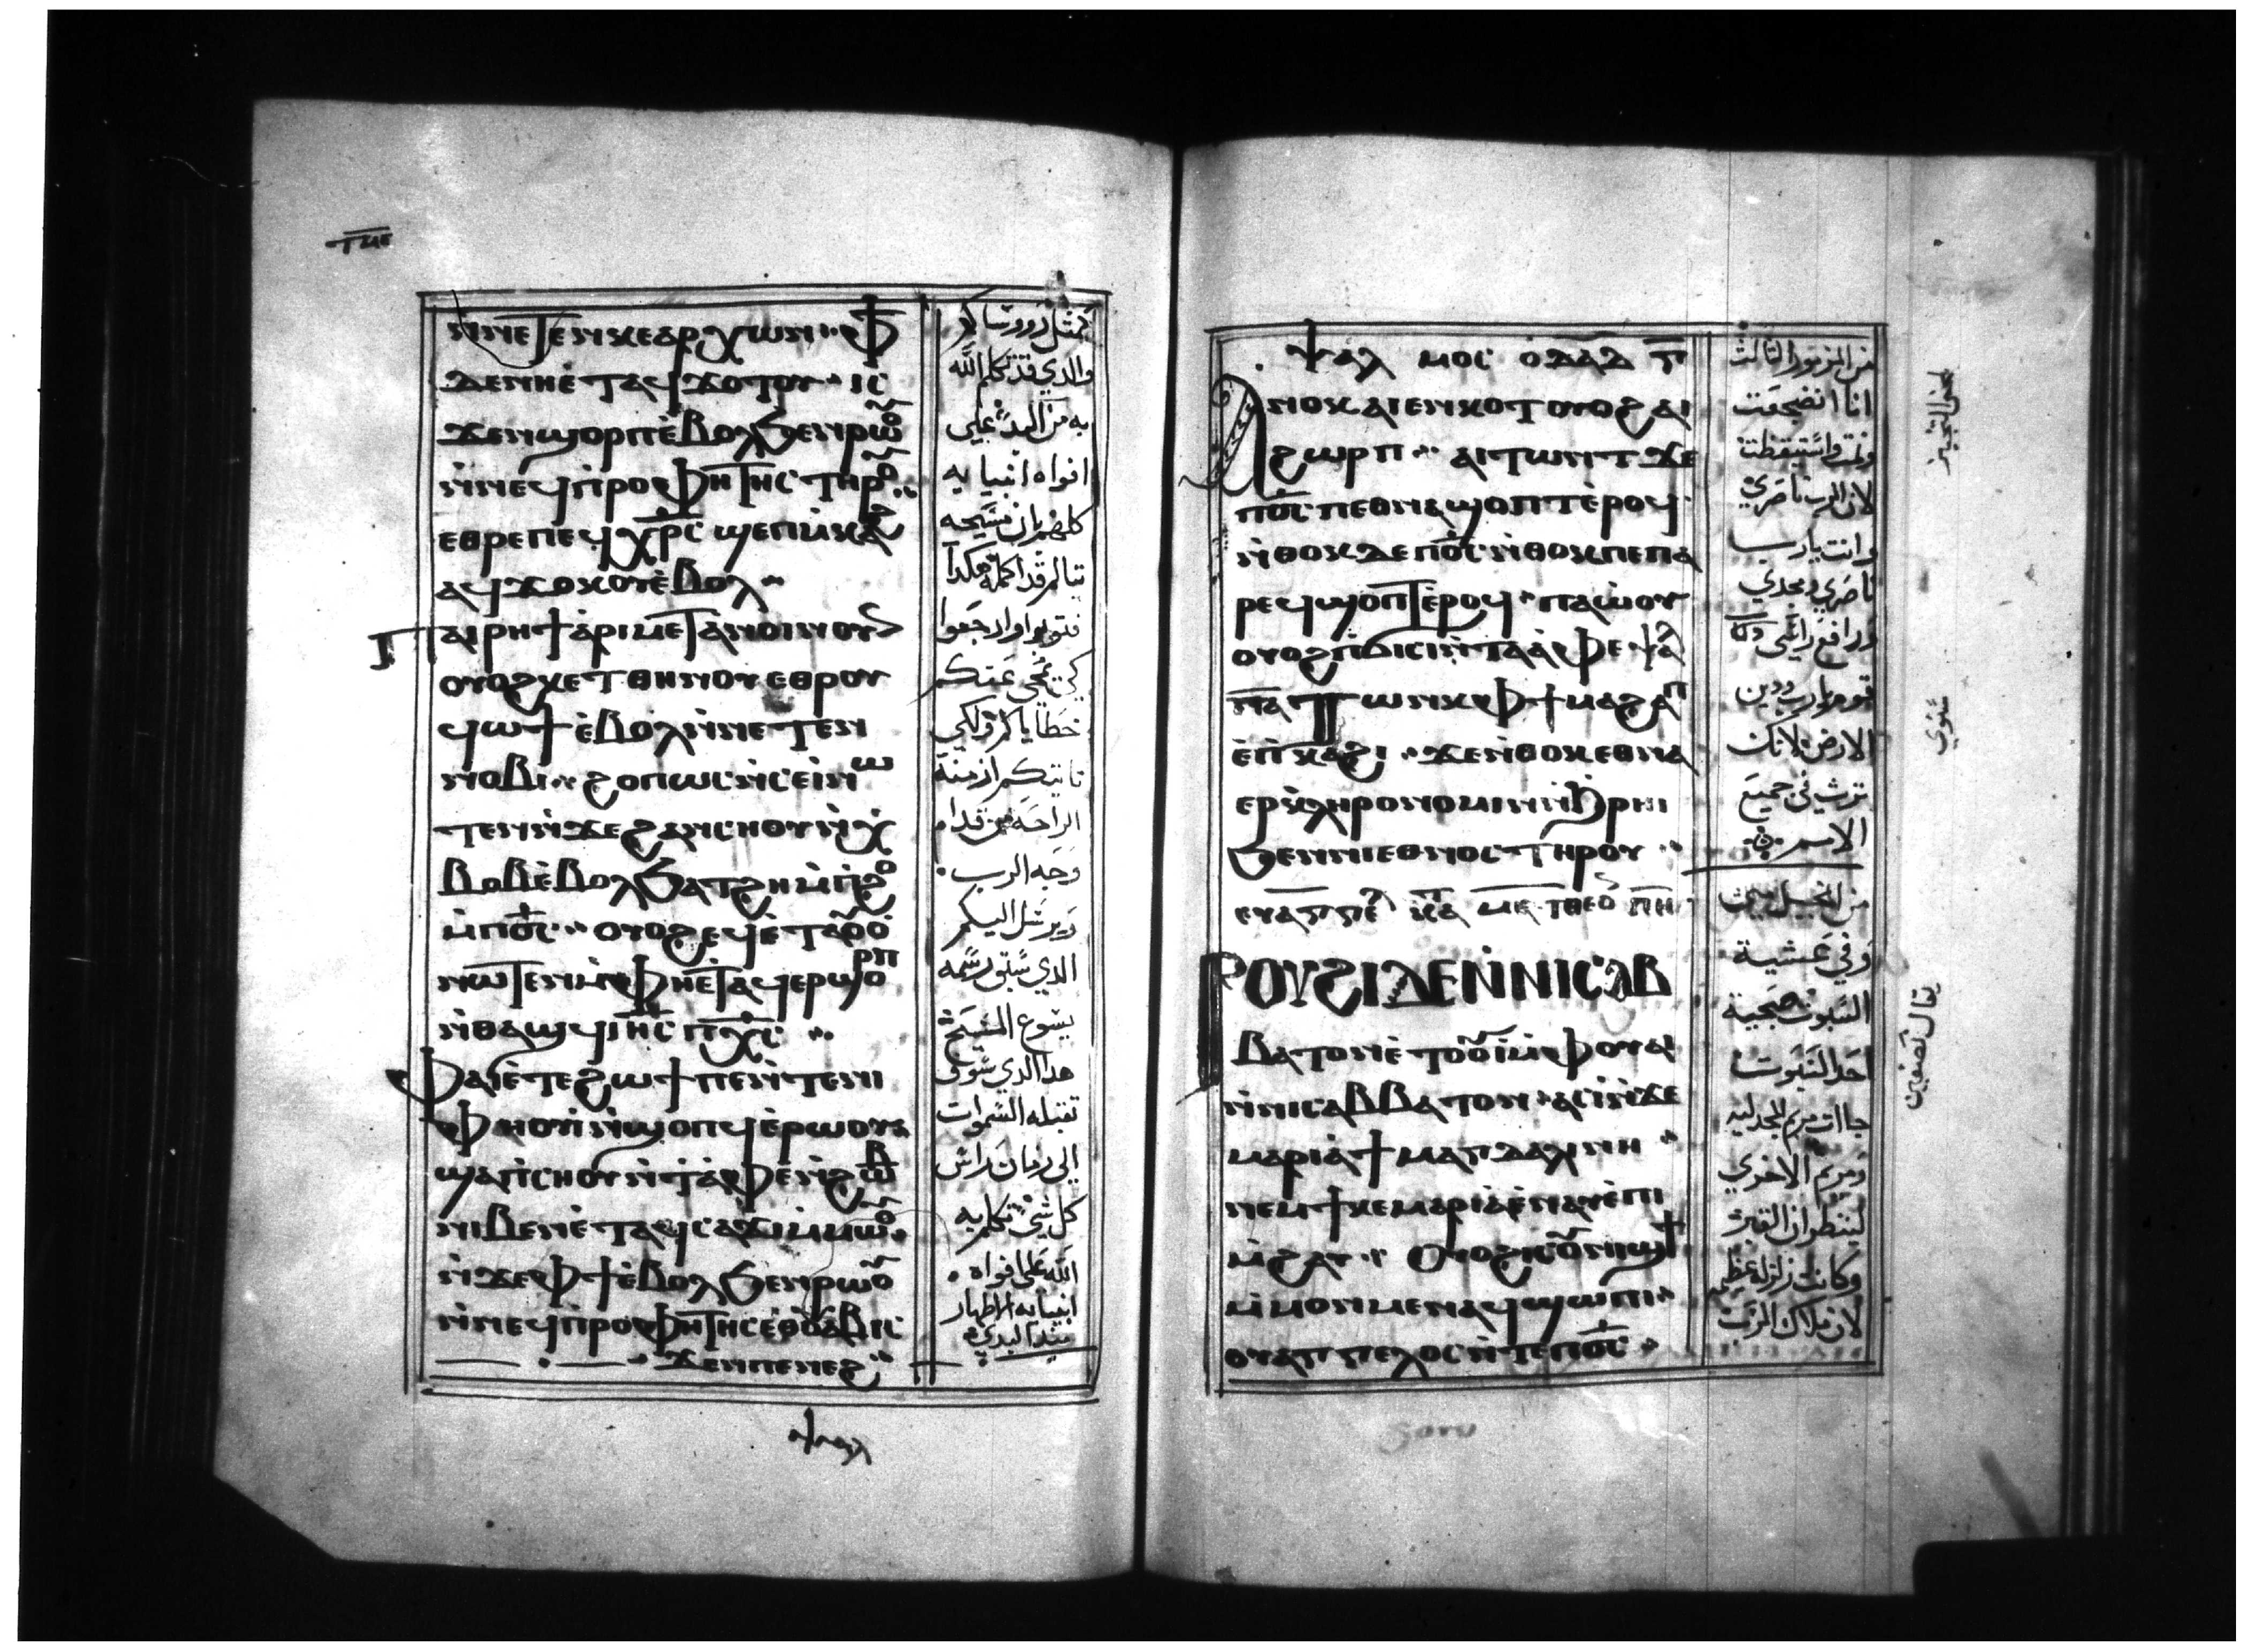 ⲧⲙⲉ
ⲛⲛⲉⲧⲉⲛⲕⲉⲁⲣⲭⲱⲛ ⲫϯ
ⲇⲉⲛⲏⲉⲧⲁϥϫⲟⲧⲟⲩ ⲓⲥ
ϫⲉⲛϣⲟⲣⲡⲉⲃⲟⲗϧⲉⲛⲣⲱⲟⲩ
ⲛⲛⲉϥⲡⲣⲟⲫⲏⲧⲏⲥ ⲧⲏⲣⲟⲩ
ⲉⲑⲣⲉⲡⲉϥⲭⲣⲥ ϣⲉⲡⲙⲕⲁϩ
ⲁϥϫⲟⲕⲟⲩⲉⲃⲟⲗ
ⲡⲁⲓⲣⲏϯ ⲁⲣⲓⲙⲉⲧⲁⲛⲟⲓⲛⲟⲩⲛ
ⲟⲩⲟϩⲕⲉⲧ ⲑⲏⲛⲟⲩ ⲉⲑⲣⲟⲩ
ϥⲱϯ ⲉⲃⲟⲗⲛⲛⲉⲧⲉⲛ
ⲛⲟⲃⲓ ϩⲟⲡⲱⲥⲛⲥⲉⲓⲛⲱ
ⲧⲉⲛⲛϫⲉϩⲁⲛⲥⲏⲟⲩⲛⲭ
ⲃⲟⲃⲉⲃⲟⲗϧⲁⲧϩⲏⲙⲡϩⲟ
ⲙⲡϭⲥ ⲟⲩⲟϩⲉϥⲉⲧⲁⲟⲩⲟ
ⲛⲱⲧⲉⲛⲙⲫⲏⲉⲧⲁϥⲉⲣϣⲟⲣⲡ
ⲛⲑⲁϣϥ ⲓⲏⲥ ⲡⲭⲥ
ⲫⲁⲓⲉⲧⲉϩⲱϯ ⲡⲉⲛⲧⲉⲛⲓ
ⲫⲏⲟⲩⲓ ⲛϣⲟⲡϥ ⲉⲣⲱⲟⲩ
ϣⲁⲡⲓⲥⲏⲟⲩ ⲛⲧⲁⲫⲉ ⲛϩⲱⲃ
ⲛⲓⲃⲉⲛ ⲉⲧⲁϥⲥⲁϫⲓ ⲙⲙⲱⲟⲩ
ⲛϫⲉⲫϯ ⲉⲃⲟⲗϧⲉⲛⲣⲱⲟⲩ
ⲛⲛⲉϥⲡⲣⲟⲫⲏⲧⲏⲥ ⲉⲑⲟⲩⲁⲃ ⲓⲥ
ϫⲉⲛⲡⲉⲛⲉϩ
والدي قد تكلم الله
به من البدئ على
افواه انبيايه
كلهم ان مسيحه
يتالم قد اكمله هكدا
فتوبوا وارجعوا
كي تمحى عنكم
خطاياكم ولكي
تاتيكم ازمنة
الراحة من قدام
وجه الرب
ويرسل اليكم
الدي سبق رسمه
يسوع المسيح
هدا الدي سوف
تقبله السموات
الى زمان راس
كل شي تكلم به
الله على افواه
انبيايه الاطهار
مند البدي
ⲯⲁⲗ
ⲯⲁⲗ ⲙⲟⲥ ⲟⲇⲁⲇ ⲅ
ⲁⲛⲟⲕ ⲁⲓⲉⲛⲕⲟⲧ ⲟⲩⲟϩ ⲁⲓ
ϩⲱⲣⲡ ⲁⲓⲧⲱⲛⲧ ϫⲉ
ⲡϭⲥ ⲡⲉⲑⲛⲁϣⲟⲡⲧ ⲉⲣⲟϥ
ⲛⲑⲟⲕ ⲇⲉ ⲡϭⲥ ⲛⲑⲟⲕ ⲡⲉ ⲡⲁ
ⲣⲉϥϣⲟⲡⲧ ⲉⲣⲟϥ ⲡⲁⲱⲟⲩ
ⲟⲩⲟϩ ⲡϭⲓⲥⲓ ⲛⲧⲁⲁⲫⲉ ⲯⲁⲗ
ⲡⲁ ⲧⲱⲛⲕ ⲫϯ ⲙⲁϩⲁⲡ
ⲉⲡⲕⲁϩⲓ ϫⲉ ⲛⲑⲟⲕ ⲉⲑⲛⲁ
ⲉⲣⲕⲗⲏⲣⲟⲛⲟⲙⲓⲛ ⲛϩⲣⲏⲓ
ϧⲉⲛ ⲛⲓⲉⲑⲛⲟⲥ ⲧⲏⲣⲟⲩ
ⲉⲩⲁⲅⲅⲉⲗ ⲕⲁ ⲙⲉ ⲧⲑⲉⲟ ⲡⲏ
ⲣⲟⲩϩⲓ ⲇⲉ ⲛⲛⲓⲥⲁⲃ
ⲃⲁⲧⲟⲛ ⲉⲧⲟⲟⲩⲓ ⲙⲫⲟⲩⲁⲓ
ⲛⲛⲓⲥⲁⲃⲃⲁⲧⲟⲛ ⲁⲥⲓ ⲛϫⲉ
ⲙⲁⲣⲓⲁ ϯⲙⲁⲅⲇⲁⲗⲓⲛⲏ
ⲛⲉⲙ ϯⲕⲉⲙⲁⲣⲓⲁ ⲉⲛⲁⲩ ⲉⲡⲓ
ⲙϩⲁⲩ ⲟⲩⲟϩ ⲓⲥ ⲟⲩⲛⲓϣϯ
ⲙⲙⲟⲛⲙⲉⲛ ⲁϥϣⲱⲡⲓ
ⲟⲩⲁⲅⲅⲉⲗⲟⲥ ⲛⲧⲉ ⲡϭⲥ
من المزمور الثالث
انا انضجعت
ونمت واستيقظت
لان الرب ناصري
وانت يا رب
ناصري ومجدي
ورافع راسي
قوم يا رب ودين
الارض لانك
ترث في جميع
الامم
من انجيل متى
وفي عشية
السبوت صبحية
احد السبوت
جاات مريم المجدلية
ومريم الاخرى
لينظران القبر
وكانت زلزله عظيمه
لان ملاك الرب
سنوي